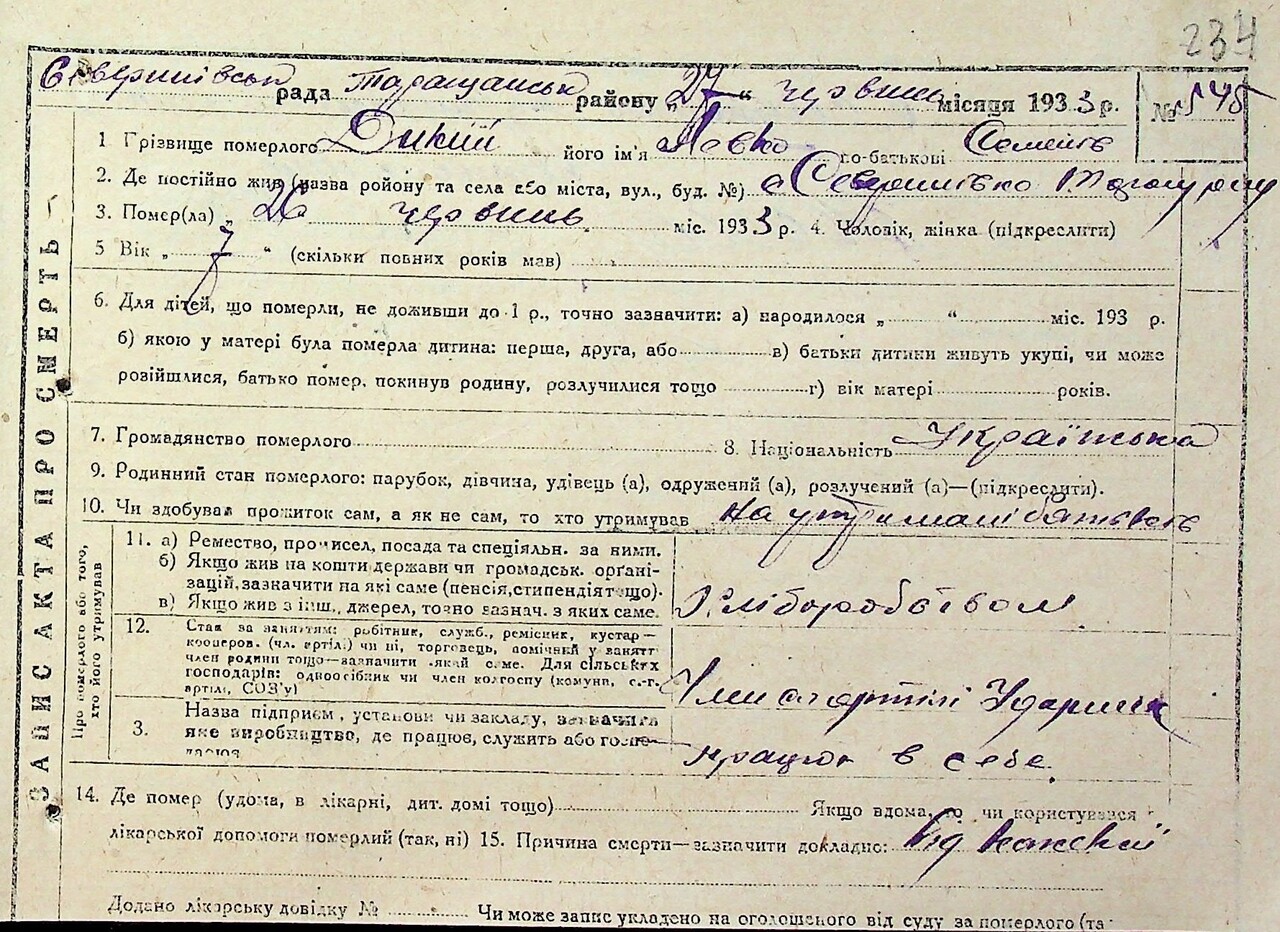 234
Северинівськ рада Таращанськ району „27“ червень місяця 1933 р. № 545
1. Грізвище померлого Дикий його ім'я Левко по-батькові Семенів
2. Де постійно жив (назва ройону та села або міста, вул., буд. №) с Северинівко
3. Помер(ла) „ 26 червень міс. 1933 р. 4. Чоловік, жінка (підкреслити)
5 Вік „ 7 “ (скільки повних років мав)
6. Для дітей, що померли, не доживши до 1 р., точно зазначити: а) народилося „ “ міс. 193 р.
б) якою у матері була померла дитина: перша, друга, або в) батьки дитини живуть укупі, чи може
розійшлися, батько помер, покинув родину, розлучилися тощо г) вік матері років.
7. Громадянство померлого 8. Національність Українська
9. Родинний стан померлого: парубок, дівчина, удівець (а), одружений (а), розлучений (а)—(підкреслити).
10. Чи здобував прожиток сам, а як не сам, то хто утримував на утримані батьків
ЗАПИС АКТА ПРО СМЕРТЬ —
Про померлого або того,
хто його утримував
11. а) Ремество, промисел, посада та спеціяльн. за ними.
б) Якщо жив на кошти держави чи громадськ. орґані-
зацій, зазначити на які саме (пенсія, стипендія тощо).
в) Якщо жив з інш., джерел, точно зазнач. з яких саме.
Хліборобством
12. Стан за заняттям: робітник, служб., ремісник, кустар—
кооперов. (чл. артілі) чи ні, торговець, помічний у занятт
член родини тощо—зазначити який саме. Для сільських
господарів: одноосібник чи член колгоспу (комуни, с.-г.
артілі, СОЗ'у)
Член артілі Ударник
3. Назва підприєм., установи чи закладу, зазначити
яке виробництво, де працює, служить або госпо-
працює в себе
14. Де помер (удома, в лікарні, дит. домі тощо) Якщо вдома, то чи користувався
лікарської допомоги померлий (так, ні) 15. Причина смерти—зазначити докладно: Від
Додано лікарську довідку № Чи може запис укладено на оголошеного від суду за померлого (та